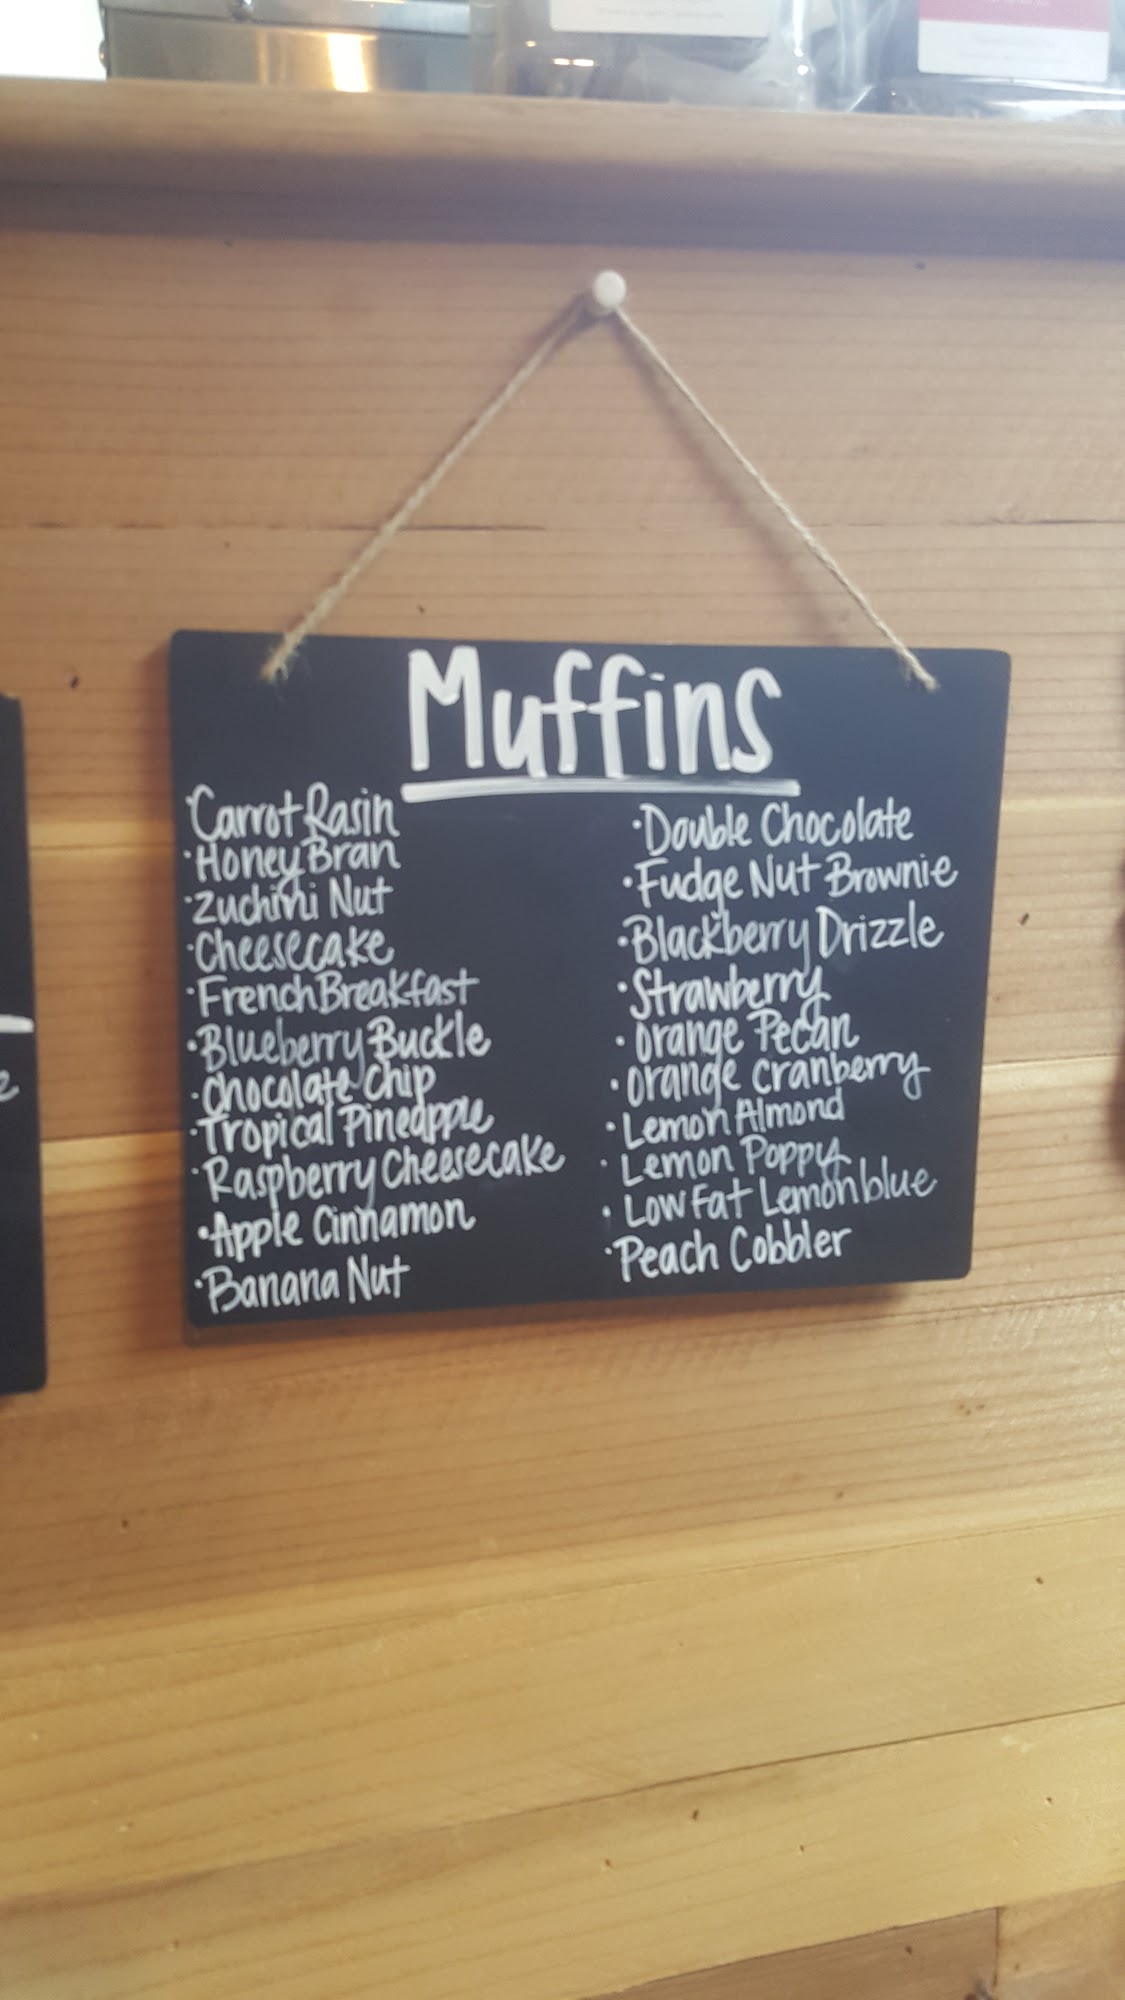 Muffins
·Carrot Rasin
·Honey Bran
·Zuchini Nut
·Cheesecake
·French Breakfast
·Blueberry Buckle
·Chocolate Chip
·Tropical Pineapple
·Raspberry Cheesecake
·Apple Cinnamon
·Banana Nut
·Double Chocolate
·Fudge Nut Brownie
·Blackberry Drizzle
·Strawberry
·Orange Pecan
·Orange Cranberry
·Lemon Almond
·Lemon Poppy
·Low Fat Lemonblue
·Peach Cobbler